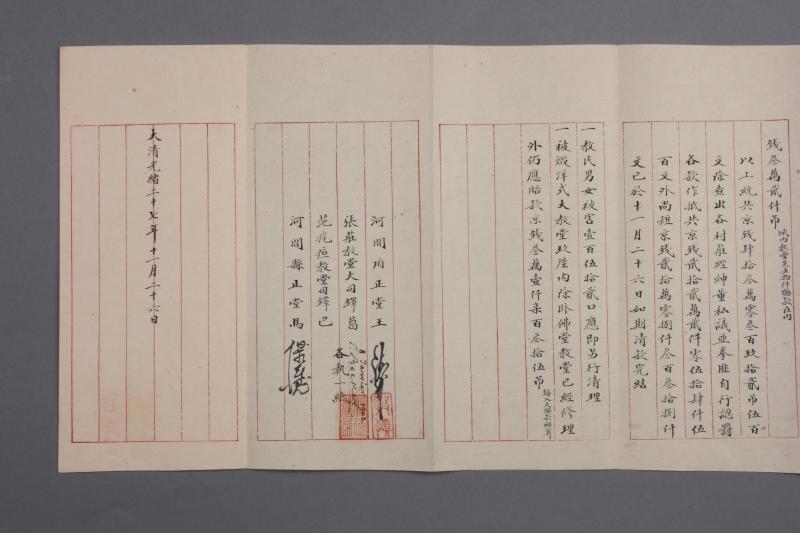 錢叁萬貳仟吊
以上統共京錢肆拾叁萬零叁百玖拾貳吊伍百
文除查出各村莊經紳董私議並拳匪自行認罰
各款作抵共京錢貳拾貳萬貳仟零伍拾肆仟伍
百文外尚短京錢貳拾萬零捌仟叁百叁拾捌仟
文已於十一月二十六日如期清款完結
一教民男女被害壹百伍拾貳口應即另行清理
一被燬洋式大教堂玖座內除臥佛堂教堂已經修理
外仍應賠款京錢叁萬壹仟柒百叁拾伍吊
河間府正堂王
張莊教堂大司鐸葛
范圪疸教堂司鐸巴
各執一紙
河間縣正堂馬
大清光緒二十七年十一月二十六日